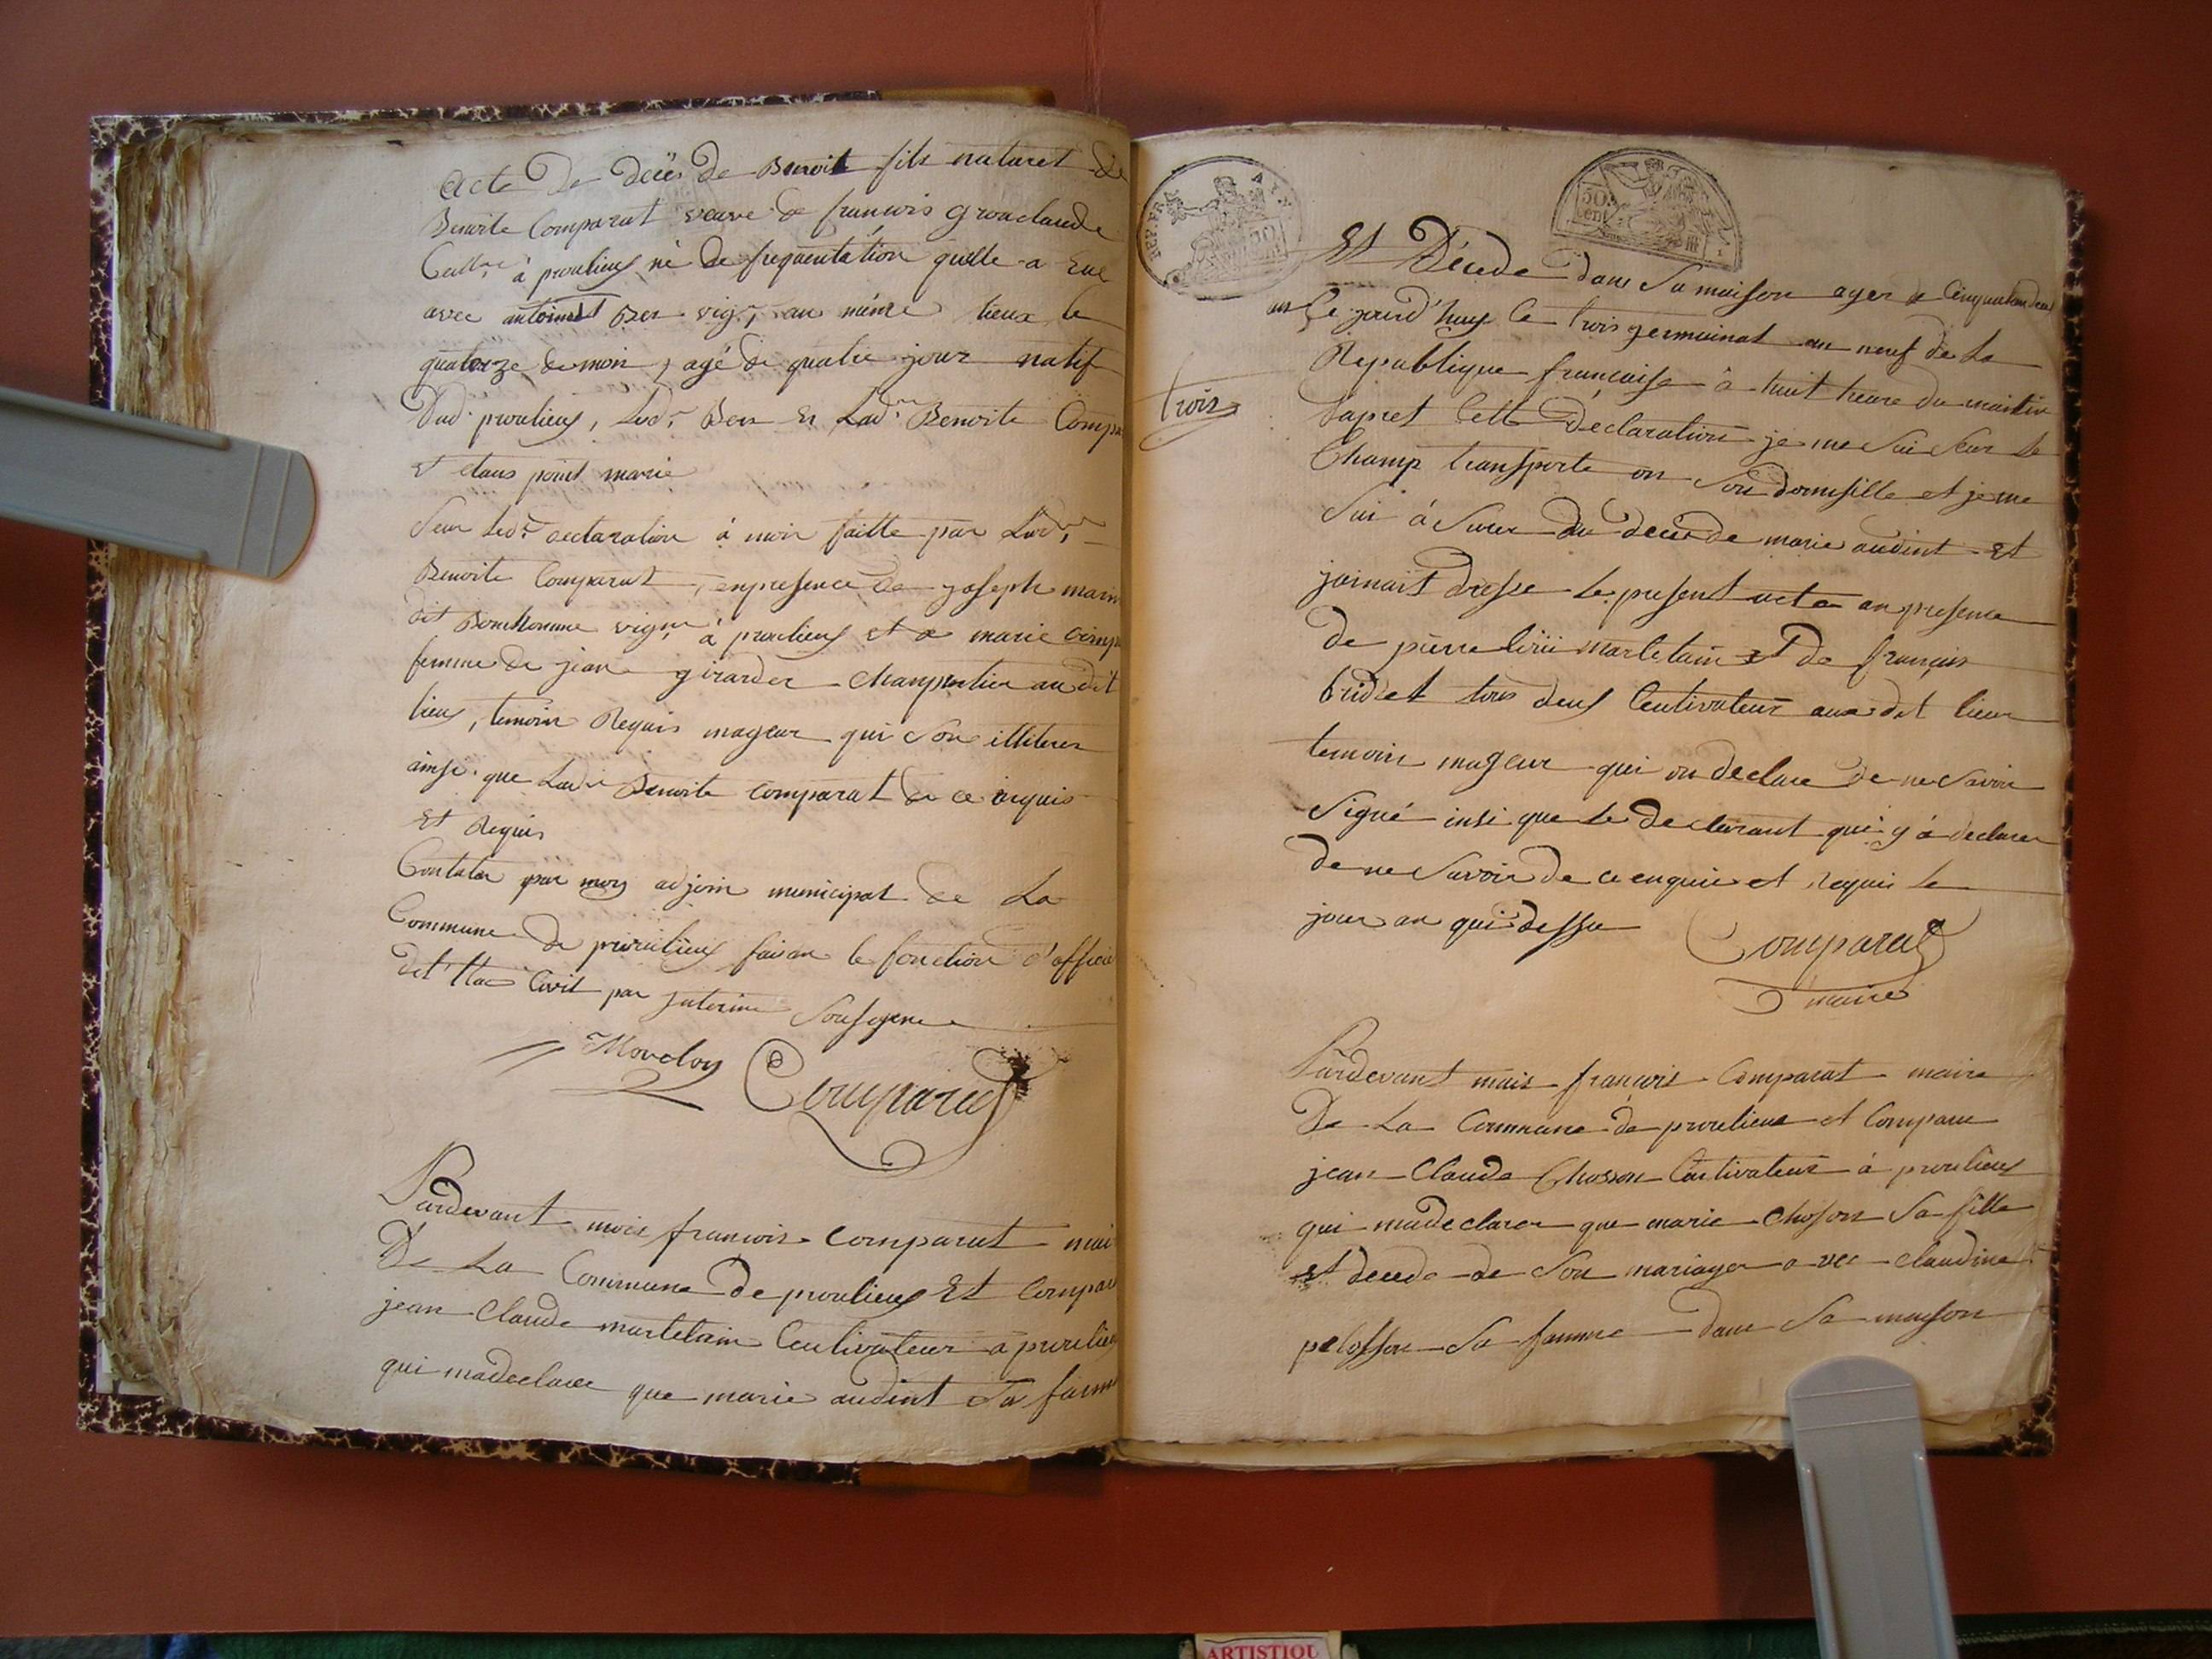 acte De deces De Benoit fils naturel De
Benoite Comparat veuve de francois gronclaude
à proulieux né De frequentation quelle a Eue
avec antoine Ber vig au même lieux le
quatorze du mois, agé de quatre jour natif
Dud proulieux, Led Ber Et Lad Benoite Compa
Et etans point marie
Seur led declaration à moi faitte par Lad
Benoite Comparat, enpresence de joseph
dit Bonhomme vig à proulieux et de marie
femme de jean girarder Charpentier au dit
lieux, temoins Requis mageur qui son illiterer
ainsi que Lad Benoite comparat de ce anquis
Et Requis
Contater par moy adjoin municipal de La
Commune de proulieux faisan le fonction d'officie
det'ta Civil par jnterime Sousigne
Comparat
Pardevant mois francois comparat mai
De La Commune De proulieux Et Compar
jean Claude martelain Ceultivateur a proulieu
qui madeclarer que marie audint Sa famm
REP. FRA
50 cent
Et Décede dans Sa maison ager de Cinquantandeux
ans Ce jourd'huy le trois germinal an neuf de La
Republique francaise à huit heure du maitin
trois
dapret Cette Déclaration je me Sui Seur le
Champ transporte on Son domisille et je me
Sui ásurer du deces de marie audint Et
joinait dresse le present acte an presence
de pierre martelain Et de francois
bridet tous deux Ceultivateur aux dit lieux
temoin mageur qui on declare de ne Savoir
Signé insi que le declarant qui y à declarer
de ne Savoir de ce enquis et requis le
jour an qui dessu
Comparat
maire
Pardevant mais francois Comparat maire
De La Commune de proulieux et Comparu
jean Claude Chosson Cultivateur à proulieux
qui madeclarer que marie Choson Sa fille
et decede de Son mariager avec Claudine
pelosson Sa famme dans Sa maison
ARTISTIQU